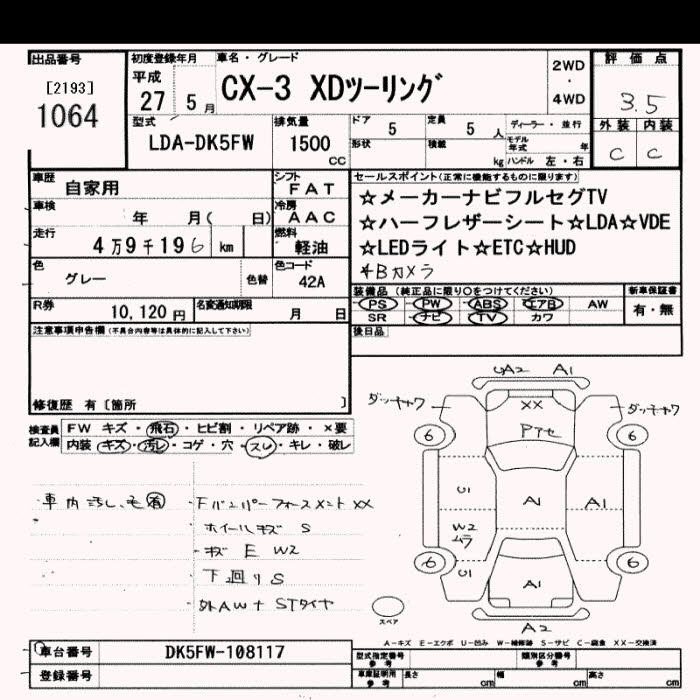 出品番号
[2193]
1064
初度登録年月
平成
27 5 月
車名・グレード
CX-3 XDツーリング
2WD
・
4WD
評価点
3.5
外装 内装
C C
型式
LDA-DK5FW
排気量
1500 cc
ドア 5
定員 5 人
形状
積載 kg
ディーラー・並行
モデル年式 年
ハンドル 左・右
車歴 自家用
シフト FAT
車検 年 月( 日)
冷房 AAC
走行 4万9千196 km
燃料 軽油
色 グレー
色替
色コード 42A
R券 10,120 円
名変通知期限 月 日
セールスポイント(正常に機能するものに限ります)
☆メーカーナビフルセグTV
☆ハーフレザーシート☆LDA☆VDE
☆LEDライト☆ETC☆HUD
☆Bカメラ
装備品(純正品に限り○をつけてください)
PS PW ABS エアB AW
SR ナビ TV カワ
新車保証書
有・無
後日品
注意事項申告欄(不具合内容等は具体的に記入して下さい)
修復歴 有〔箇所 〕
検査員記入欄
FW キズ・飛石・ヒビ割・リペア跡・×要
内装 キズ・汚レ・コゲ・穴・スレ・キレ・破レ
車内汚レ、毛有
・Fバンパーフォースメント XX
・ホイールキズ S
・キズ E W2
・下回り S
・外AW+STタイヤ
UA2 A1
ダッチャク
ダッチャク
XX
アセ
6 6
U1
A1
A1
W2
ムラ
U1
6 6
A1
A2
スペア
A-キズ E-エクボ U-凹み W-補修跡 S-サビ C-腐食 XX-交換済
車台番号 DK5FW-108117
登録番号
型式指定番号 参考
類別区分番号 参考
車庫証明用 参考
長さ cm
幅 cm
高さ cm